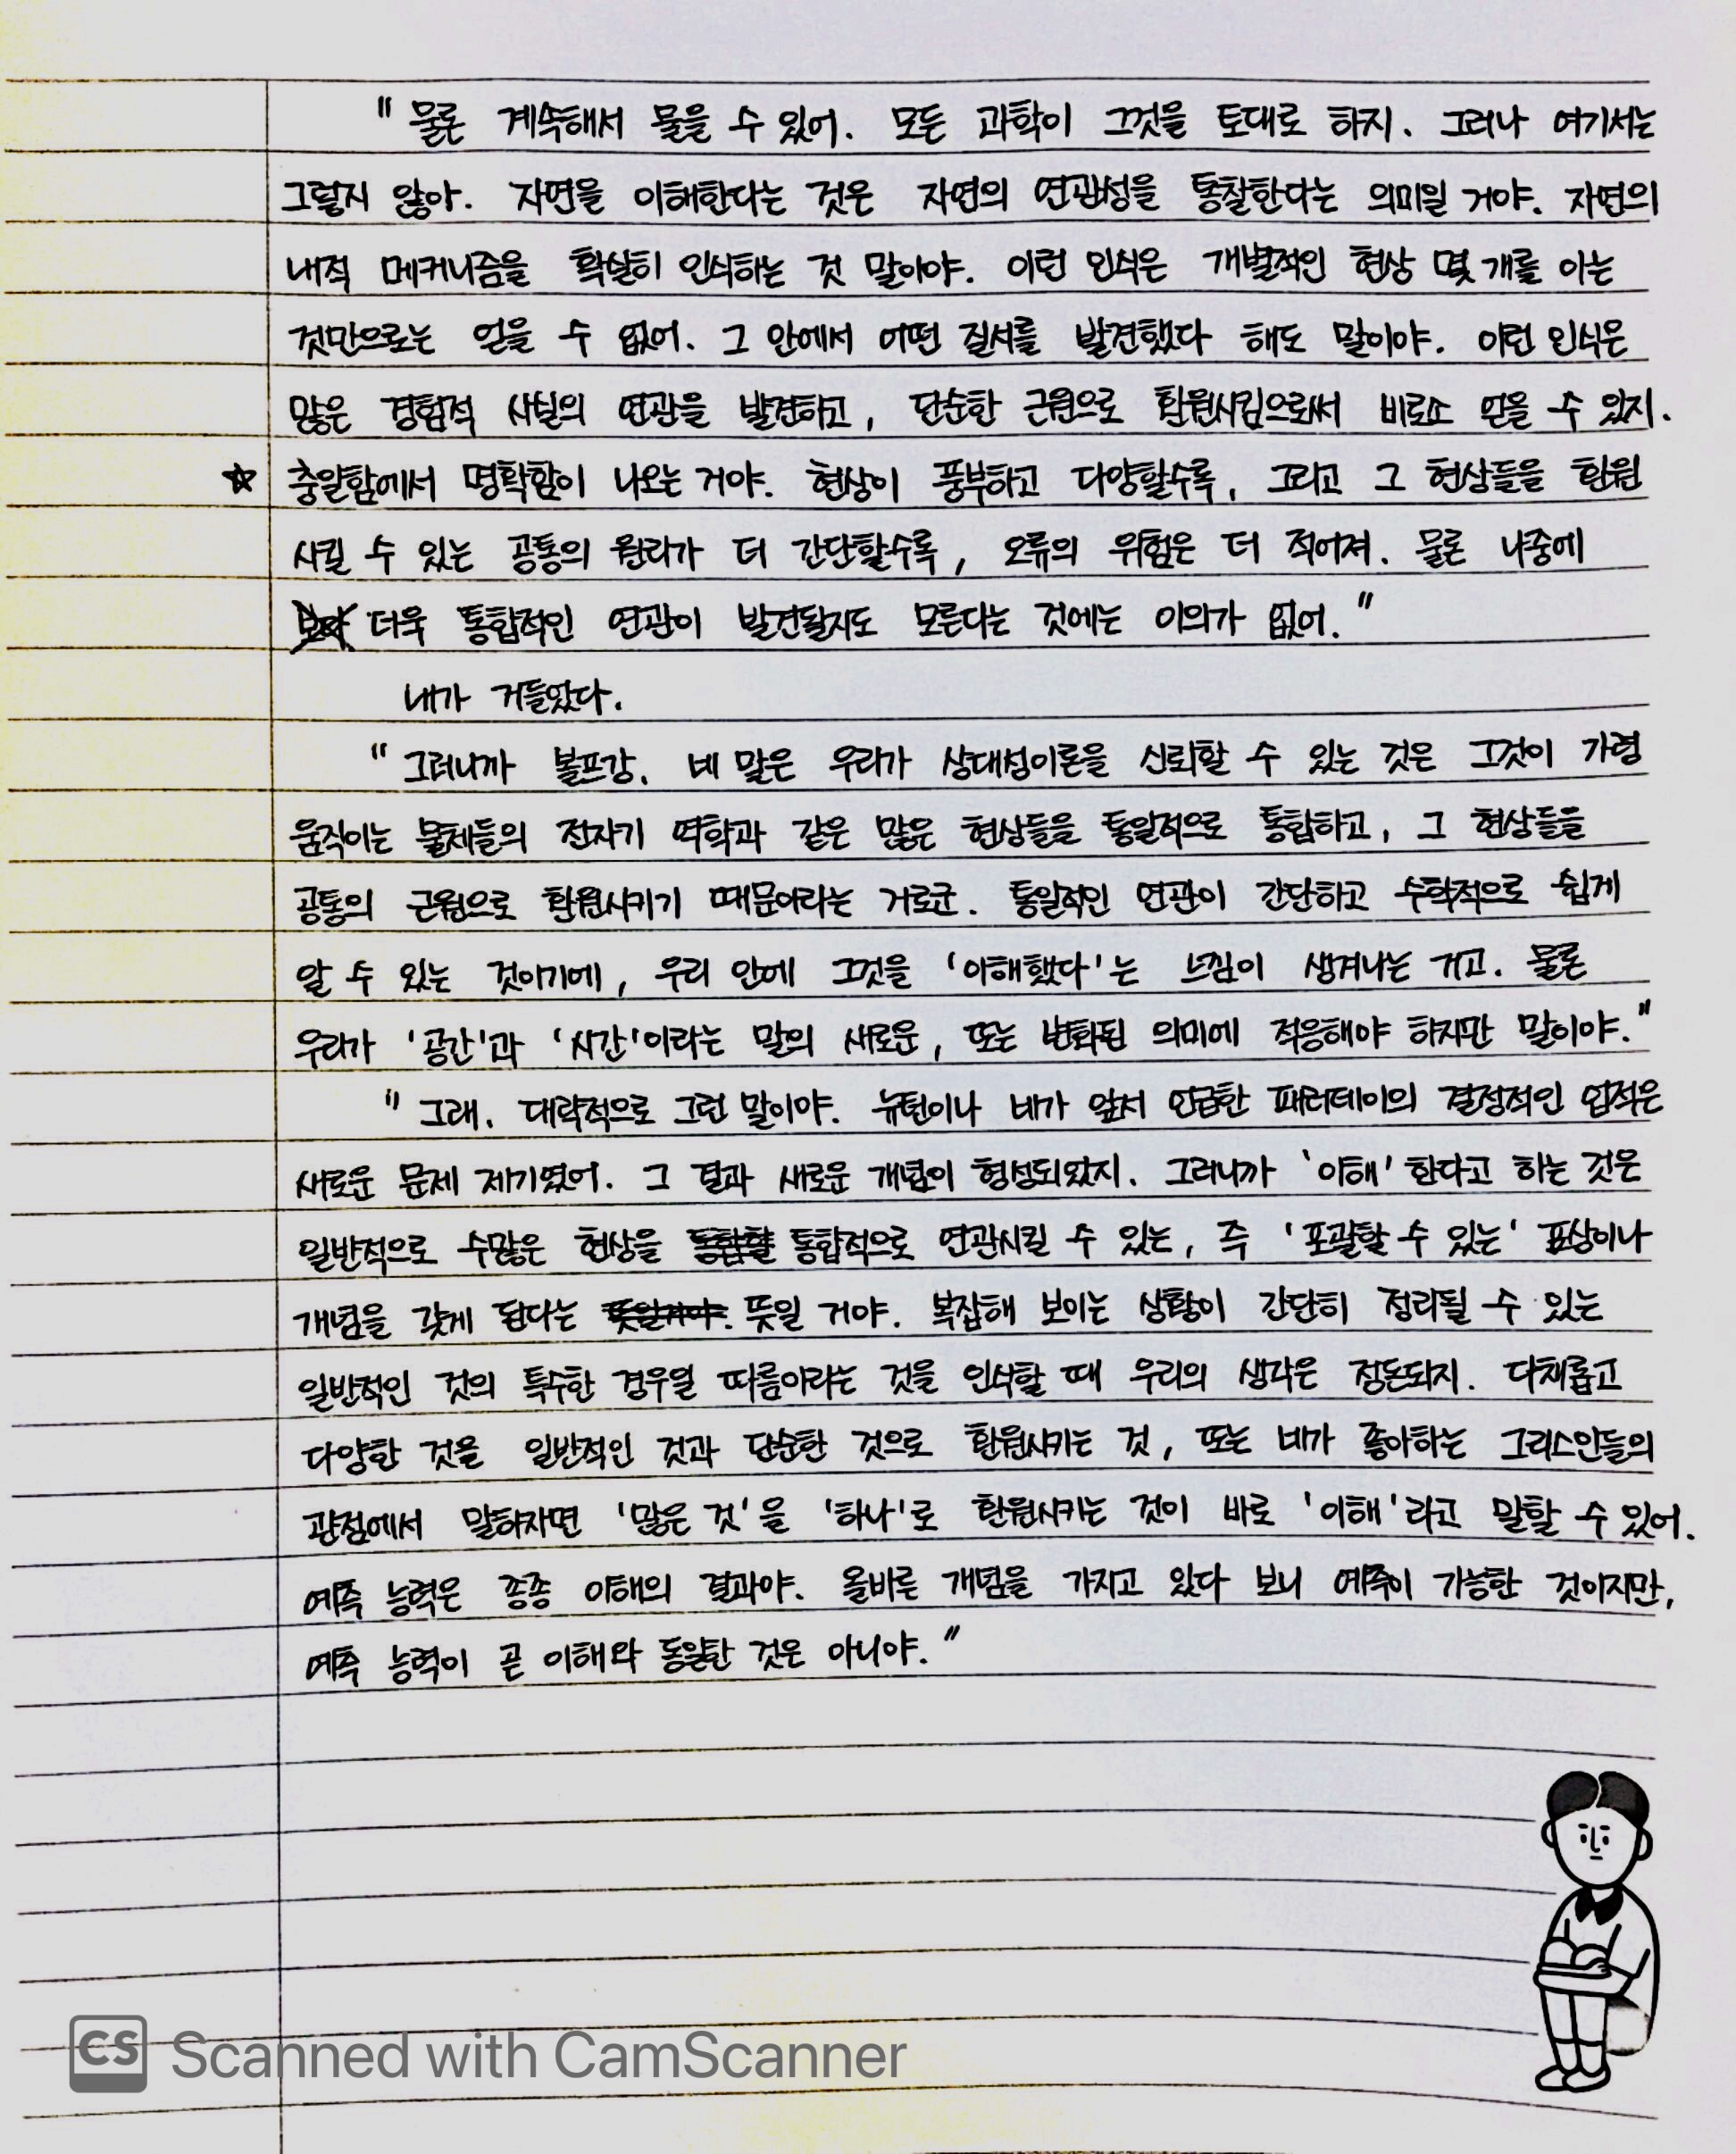 " 물론 계속해서 물을 수 있어. 모든 과학이 그것을 토대로 하지. 그러나 여기서는
그렇지 않아. 자연을 이해한다는 것은 자연의 연관성을 통찰한다는 의미일 거야. 자연의
내적 메커니즘을 확실히 인식하는 것 말이야. 이런 인식은 개별적인 현상 몇 개를 아는
것만으로는 얻을 수 없어. 그 안에서 어떤 질서를 발견했다 해도 말이야. 이런 인식은
많은 경험적 사실의 연관을 발견하고, 단순한 근원으로 환원시킴으로써 비로소 얻을 수 있지.
☆ 충일함에서 명확함이 나오는 거야. 현상이 풍부하고 다양할수록, 그리고 그 현상들을 환원
시킬 수 있는 공통의 원리가 더 간단할수록, 오류의 위험은 더 적어져. 물론 나중에
더욱 통합적인 연관이 발견될지도 모른다는 것에는 이의가 없어."
내가 거들었다.
" 그러니까 볼프강, 네 말은 우리가 상대성이론을 신뢰할 수 있는 것은 그것이 가령
움직이는 물체들의 전자기 역학과 같은 많은 현상들을 통일적으로 통합하고, 그 현상들을
공통의 근원으로 환원시키기 때문이라는 거로군. 통일적인 연관이 간단하고 수학적으로 쉽게
알 수 있는 것이기에, 우리 안에 그것을 '이해했다'는 느낌이 생겨나는 거고. 물론
우리가 '공간'과 '시간'이라는 말의 새로운, 또는 변화된 의미에 적응해야 하지만 말이야."
" 그래. 대략적으로 그런 말이야. 뉴턴이나 네가 앞서 언급한 패러데이의 결정적인 업적은
새로운 문제 제기였어. 그 결과 새로운 개념이 형성되었지. 그러니까 '이해' 한다고 하는 것은
일반적으로 수많은 현상을 통합할 통합적으로 연관시킬 수 있는, 즉 '포괄할 수 있는' 표상이나
개념을 갖게 된다는 뜻일거야. 뜻일 거야. 복잡해 보이는 상황이 간단히 정리될 수 있는
일반적인 것의 특수한 경우일 따름이라는 것을 인식할 때 우리의 생각은 정돈되지. 다채롭고
다양한 것을 일반적인 것과 단순한 것으로 환원시키는 것, 또는 네가 좋아하는 그리스인들의
관점에서 말하자면 '많은 것'을 '하나'로 환원시키는 것이 바로 '이해'라고 말할 수 있어.
예측 능력은 종종 이해의 결과야. 올바른 개념을 가지고 있다 보니 예측이 가능한 것이지만,
예측 능력이 곧 이해와 동일한 것은 아니야."
CS Scanned with CamScanner